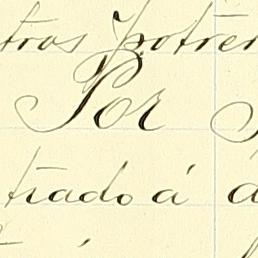 tros potrer
Por
trado á a